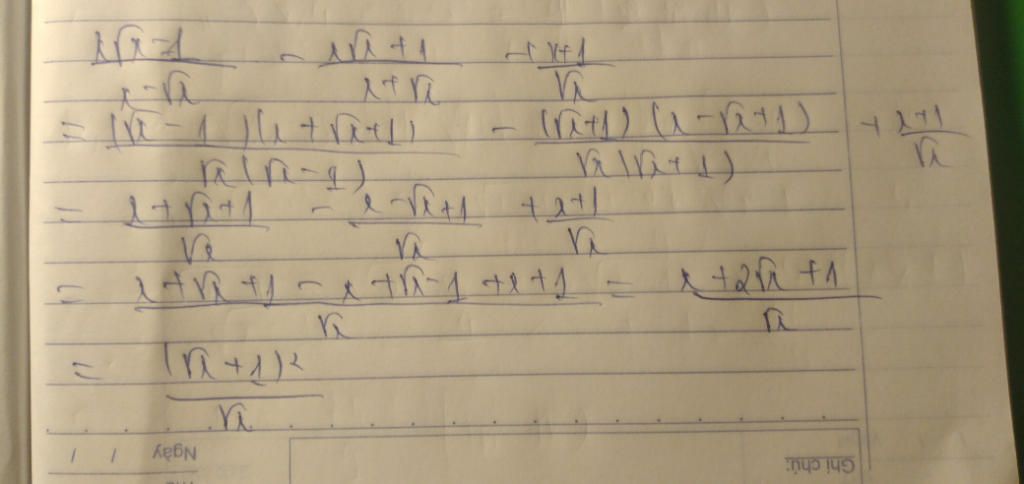 x√x-1/x-√x - x√x+1/x+√x + x+1/√x
= (√x-1)(x+√x+1)/√x(√x-1) - (√x+1)(x-√x+1)/√x(√x+1) + x+1/√x
= x+√x+1/√x - x-√x+1/√x + x+1/√x
= x+√x+1-x+√x-1+x+1/√x = x+2√x+1/√x
= (√x+1)²/√x
Ngày / /
Ghi chú: